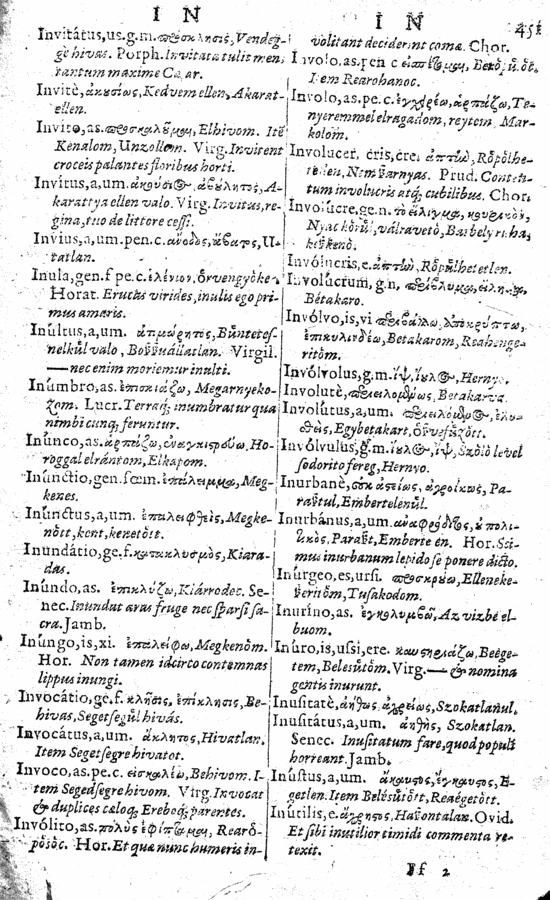 I N
Invitátus, us. g. m. πρόσκλησις, Vendeg-
ge hivas. Porph. Invitata tulit men,
tantum maxime Cæsar.
Invitè, ἀκουσίως, Kedvem ellen, Akarat-
ellen.
Invito, as. προσκαλοῦμαι, Elhivom. Itẽ
Kenalom, Unzollom. Virg. Invitent
croceis palantes floribus horti.
Invitus, a, um. ἀκούσιος, ἀβούλητος, A-
karattya ellen valo. Virg. Invitus, re-
gina, tuo de littore cessi.
Invius, a, um. pen. c. ἄνοδος, ἄβατος, U-
tatlan.
Inula, gen. f pe. c. ἑλένιον, Orvengyöke-
Horat. Eructas virides, inulis ego pri-
mus amaris.
Inúltus, a, um. ἀτιμώρητος, Büntetes-
nelkül valo, Boßßuállatlan. Virgil.
—nec enim moriemur inulti.
Inúmbro, as. ἐπισκιάζω, Megarnyeko-
zom. Lucr. Terraq; inumbratur qua
nimbi cunq; feruntur.
Inúnco, as. ἁρπάζω, Ho-
roggal elrántom, Elkapom.
Inúnctio, gen. fœm. ἐπάλειμμα, Meg-
kenes.
Inúnctus, a, um. ἐπαλειφθεὶς, Megke-
nött, kent, kenetött.
Inundátio, ge, f. κατακλυσμὸς, Kiara-
das.
Inúndo, as. ἐπικλύζω, Kiárrodec. Se-
nec. Inundat aras fruge nec sparsi sa-
cra. Jamb.
Inúngo, is, xi. ἐπαλείφω, Megkenöm.
Hor. Non tamen idcirco contemnas
lippus inungi.
Invocátio, ge. f. κλῆσις, ἐπίκλησις, Be-
hivas, Segetsegül hivás.
Invocátus, a, um. ἄκλητος, Hivatlan.
Item Segetsegre hivatot.
Invoco, as. pe. c. εἰσκαλέω, Behivom. I-
tem Segedsegre hivom. Virg. Invocat
& duplices caloq; Ereboq; parentes.
Invólito, as. πολὺς ἐφίπταμαι, Rearö-
pösöc. Hor. Et quæ nunc humeris in-
I N 451
volitant deciderint comæ. Chor.
Involo, as. pen c εἰσπέταμαι,
Item Rearohanoc.
Involo, as. pe. c. ἐγχειρέω, ἁρπάζω, Te-
nyeremmel elragadom, reytem, Mar-
kolöm.
Involucer, cris, cre, ἀπτὼν, Röpölhe-
tetlen, Nem ßarnyas. Prud. Conten-
tum involucris atq; cubilibus. Chor.
Involúcre, ge. n.
Nyac körül, válravetö, Barbely ruha,
keßkenö.
Invólucris, e. ἀπτὼν, Röpülhetetlen.
Involúcrum, g. n,
Bétakaro.
Invólvo, is, vi περιβάλλω, ἀποκρύπτω,
ἐπικυλινδέω, Betakarom, Reahenge-
ritöm.
Invólvolus, g. m. ἲψ, ἴουλος, Hernyo.
Involutè, Betakarva.
Involútus, a, um.
Egybetakart,
Invólvulus, g. m. ἴουλος, ἲψ, Szölö levél
sodorito fereg, Hernyo.
Inurbanè, οὐκ ἀστείως, ἀγροίκως, Pa-
raßtul, Embertelenül.
Inurbánus, a, um.
Paraßt, Emberte en. Hor. Sci-
mus inurbanum lepido se ponere dicto.
Inúrgeo, es, ursi. προσκρούω, Elleneke-
ßeritöm, Tusakodom.
Inúrino, as. ἐγκολυμβῶ, Az vizbé el-
buom.
Inúro, is, ussi, ere. Beége-
tem, Belesütöm. Virg.—& nomina
gentis inurunt.
Inusitatè, ἀήθως Szokatlanul.
Inusitátus, a, um. ἀηθὴς, Szokatlan.
Senec. Inusitatum fare, quod populi
horreant. Jamb.
Inústus, a, um. ἄκαυστος, ἔγκαυστος, E-
getlen. Item Belésütött, Reaégetött.
Inútilis, e. ἄχρηστος, Haßontalan. Ovid.
Et sibi inutilior timidi commenta re-
texit.
Ff 2